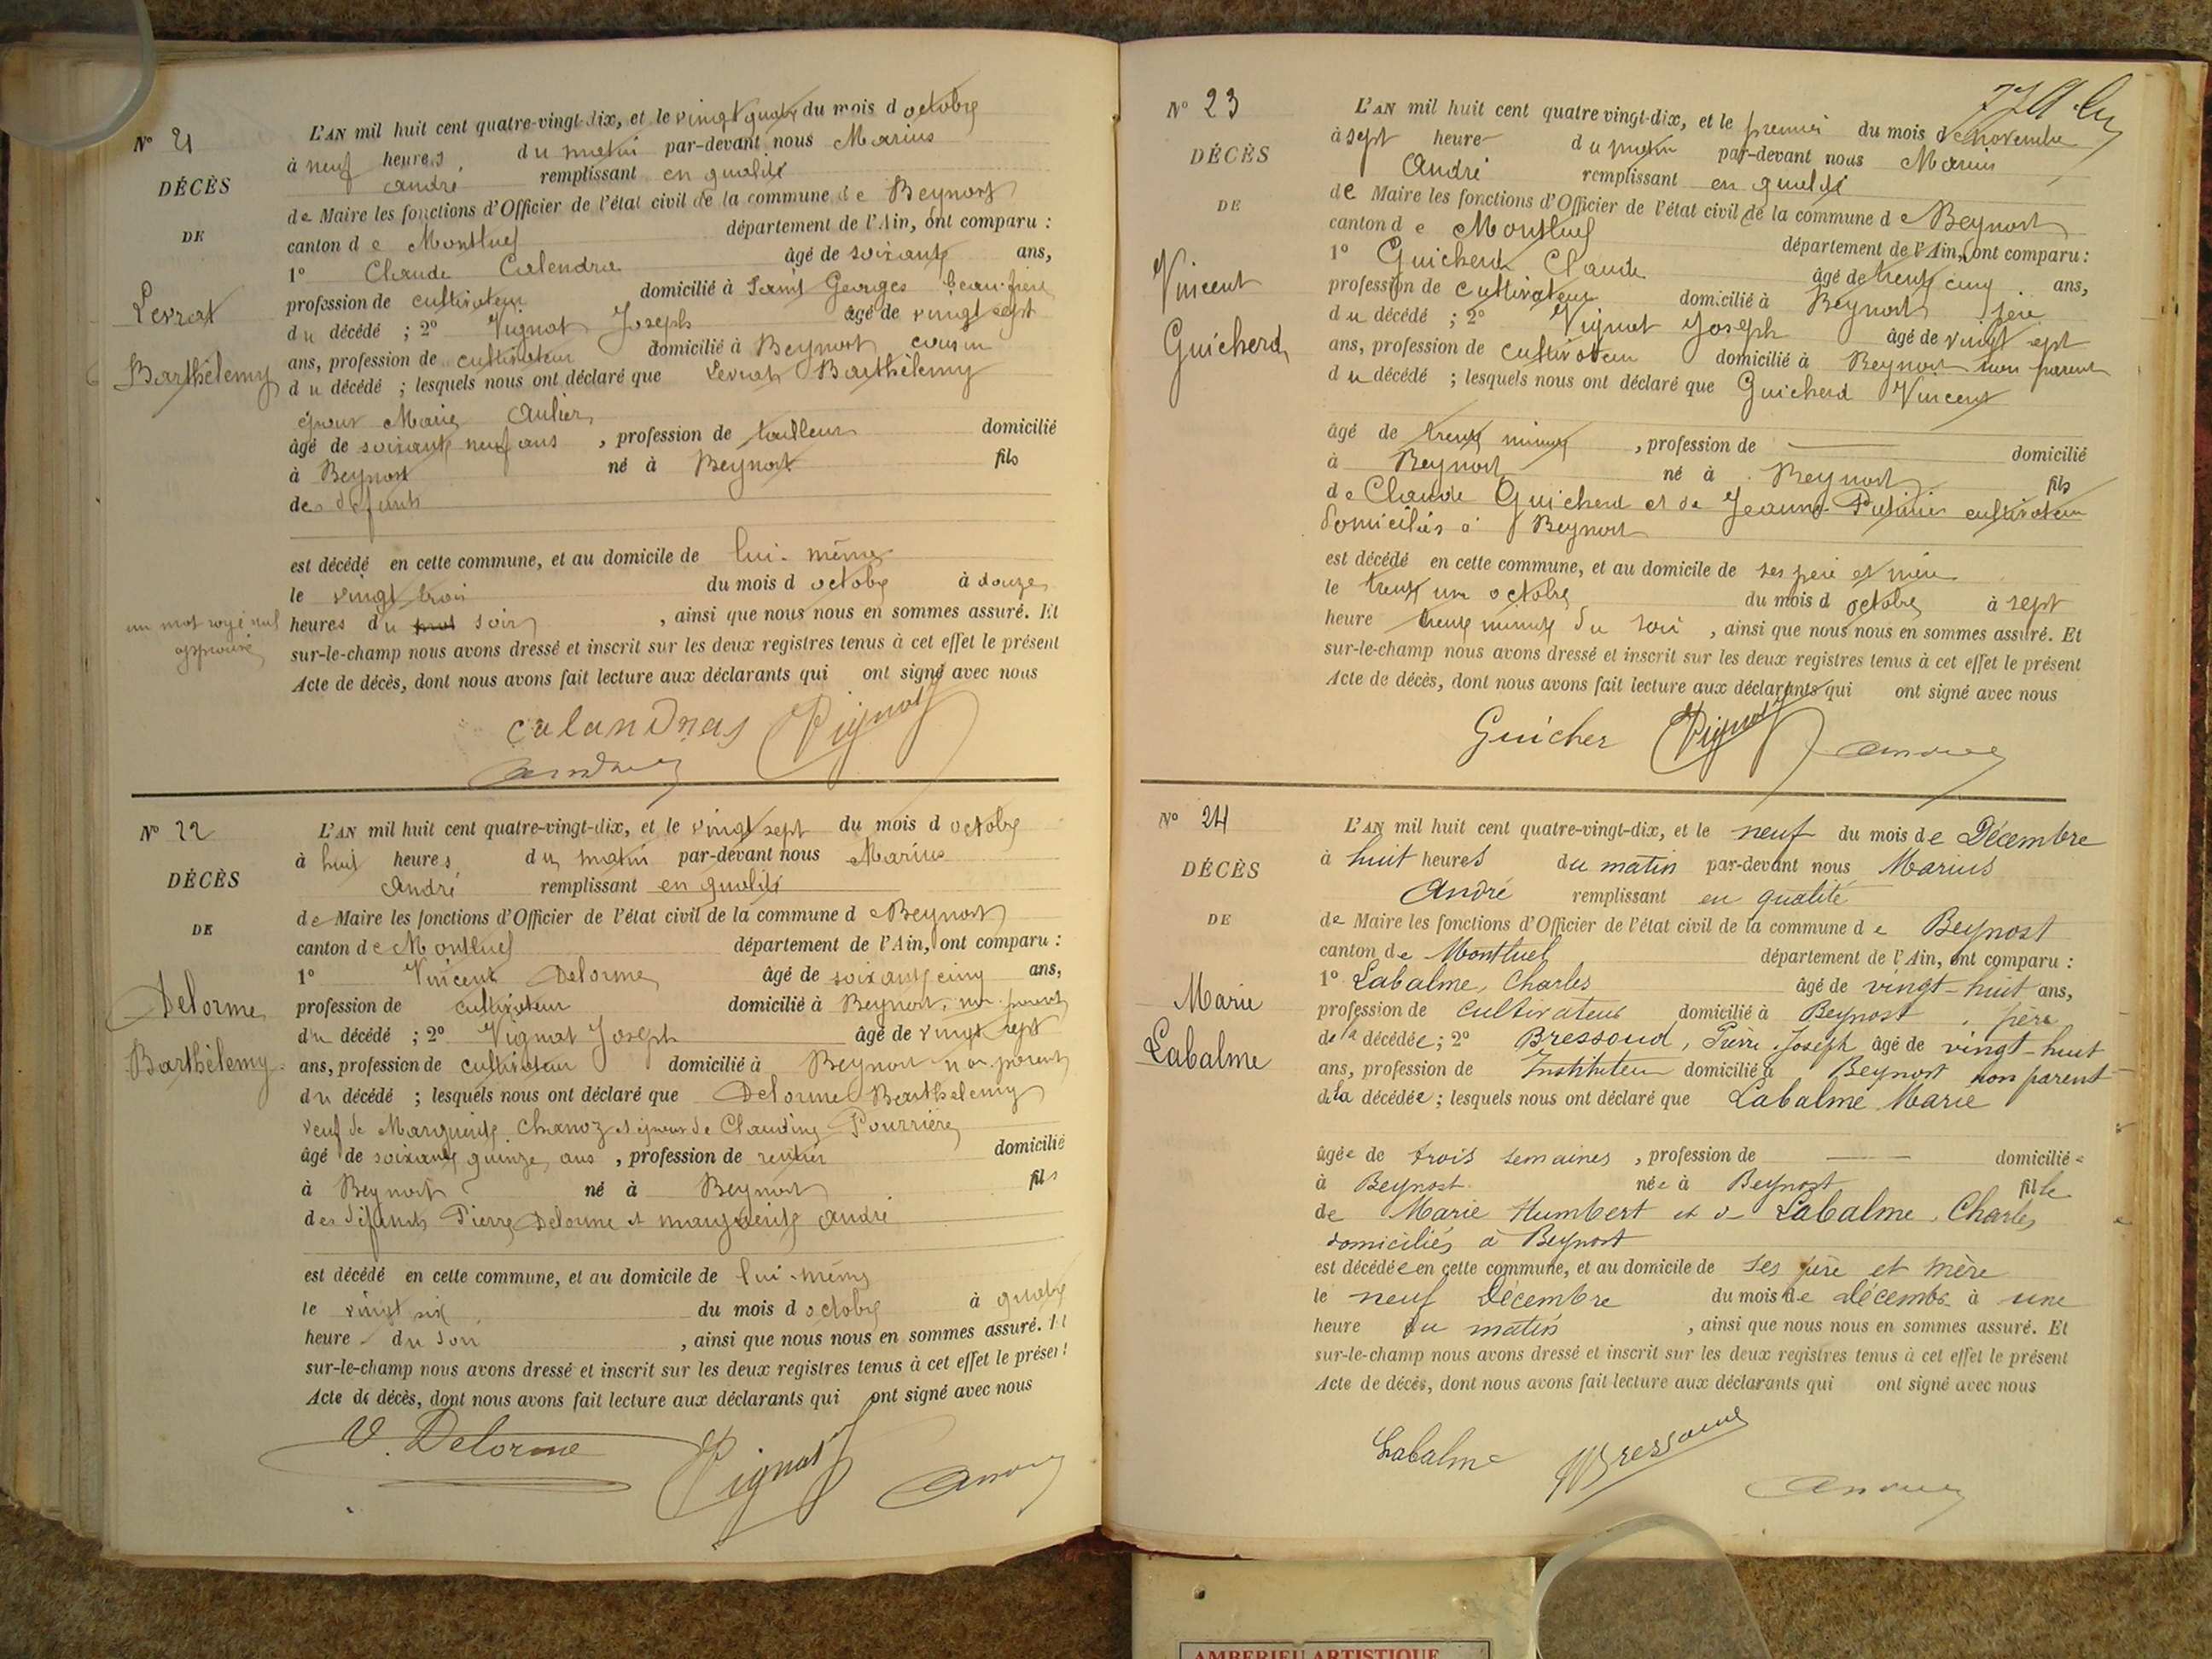 N° 21
DÉCÈS
DE
Levrat
Barthélemy
un mot rayé nul
approuvé
L'AN mil huit cent quatre-vingt-dix, et le vingt quatre du mois d octobre
à neuf heures du matin par-devant nous Marius
André remplissant en qualité
de Maire les fonctions d'Officier de l'état civil de la commune de Beynost
canton de Montluel département de l'Ain, ont comparu :
1° Claude Calendra âgé de soixante ans,
profession de cultivateur domicilié à Saint Georges beau-frère
du décédé ; 2° Vignat Joseph âgé de vingt sept
ans, profession de cultivateur domicilié à Beynost cousin
du décédé ; lesquels nous ont déclaré que Levrat Barthélemy
époux Marie Aulier
âgé de soixante neuf ans , profession de tailleur domicilié
à Beynost né à Beynost fils
des défunts
est décédé en cette commune, et au domicile de lui-même
le vingt trois du mois d octobre à douze
heures du soir , ainsi que nous nous en sommes assuré. Et
sur-le-champ nous avons dressé et inscrit sur les deux registres tenus à cet effet le présent
Acte de décès, dont nous avons fait lecture aux déclarants qui ont signé avec nous
calandras Vignat
André
N° 22
DÉCÈS
DE
Delorme
Barthélemy
L'AN mil huit cent quatre-vingt-dix, et le vingt sept du mois d octobre
à huit heures du matin par-devant nous Marius
André remplissant en qualité
de Maire les fonctions d'Officier de l'état civil de la commune d e Beynost
canton de Montluel département de l'Ain, ont comparu :
1° Vincent Delorme âgé de soixante cinq ans,
profession de cultivateur domicilié à Beynost, non parent
du décédé ; 2° Vignat Joseph âgé de vingt sept
ans, profession de cultivateur domicilié à Beynost non parent
du décédé ; lesquels nous ont déclaré que Delorme Barthelemy
veuf de Marguerite Chanoz et époux de Claudine Pourrière
âgé de soixante quinze ans , profession de rentier domicilié
à Beynost né à Beynost fils
des défunts Pierre Delorme et marguerite André
est décédé en cette commune, et au domicile de lui-même
le vingt six du mois d octobre à quatre
heure du soir , ainsi que nous nous en sommes assuré. Et
sur-le-champ nous avons dressé et inscrit sur les deux registres tenus à cet effet le présent
Acte de décès, dont nous avons fait lecture aux déclarants qui ont signé avec nous
V. Delorme Vignat André
N° 23
DÉCÈS
DE
Vincent
Guicherd
L'AN mil huit cent quatre-vingt-dix, et le premier du mois de novembre
à sept heure du matin par-devant nous Marius
André remplissant en qualité
de Maire les fonctions d'Officier de l'état civil de la commune d e Beynost
canton d e Montluel département de l'Ain, ont comparu :
1° Guicherd Claude âgé de trente cinq ans,
profession de cultivateur domicilié à Beynost père
du décédé ; 2° Vignat Joseph âgé de vingt sept
ans, profession de cultivateur domicilié à Beynost non parent
du décédé ; lesquels nous ont déclaré que Guicherd Vincent
âgé de trente minutes , profession de domicilié
à Beynost né à Beynost fils
de Claude Guicherd et de Jeanne cultivateur
domiciliés à Beynost
est décédé en cette commune, et au domicile de ses père et mère
le trente un octobre du mois d octobre à sept
heure trente minutes du soir , ainsi que nous nous en sommes assuré. Et
sur-le-champ nous avons dressé et inscrit sur les deux registres tenus à cet effet le présent
Acte de décès, dont nous avons fait lecture aux déclarants qui ont signé avec nous
Guicher Vignat André
N° 24
DÉCÈS
DE
Marie
Labalme
L'AN mil huit cent quatre-vingt-dix, et le neuf du mois de Décembre
à huit heures du matin par-devant nous Marius
André remplissant en qualité
de Maire les fonctions d'Officier de l'état civil de la commune d e Beynost
canton de Montluel département de l'Ain, ont comparu :
1° Labalme, Charles âgé de vingt-huit ans,
profession de cultivateur domicilié à Beynost , père
de la décédée ; 2° Bressoud, Pierre Joseph âgé de vingt-huit
ans, profession de Instituteur domicilié à Beynost non parent
de la décédée ; lesquels nous ont déclaré que Labalme Marie
âgée de trois semaines , profession de domiciliée
à Beynost née à Beynost fille
de Marie Humbert et de Labalme Charles
domiciliés à Beynost
est décédée en cette commune, et au domicile de ses père et mère
le neuf Décembre du mois de décembre à une
heure du matin , ainsi que nous nous en sommes assuré. Et
sur-le-champ nous avons dressé et inscrit sur les deux registres tenus à cet effet le présent
Acte de décès, dont nous avons fait lecture aux déclarants qui ont signé avec nous
Labalme Bressoud André
AMBERIEU ARTISTIQUE